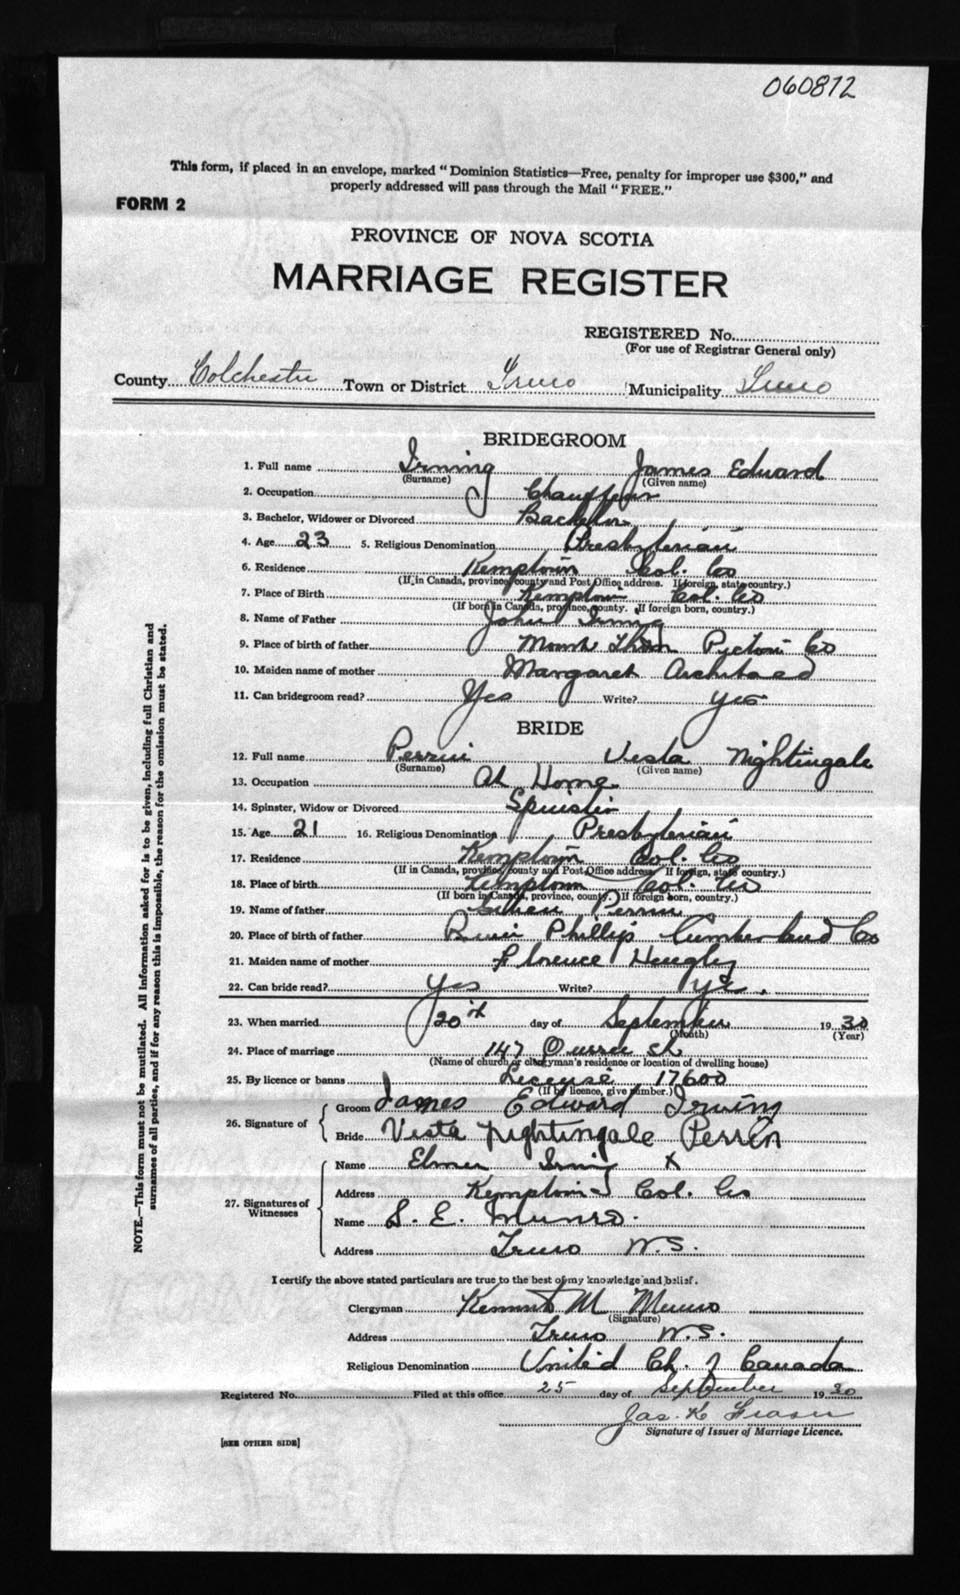 060872
This form, if placed in an envelope, marked "Dominion Statistics—Free, penalty for improper use $300," and
properly addressed will pass through the Mail "FREE."
FORM 2
PROVINCE OF NOVA SCOTIA
MARRIAGE REGISTER
REGISTERED No.
(For use of Registrar General only)
County Colchester Town or District Truro Municipality Truro
BRIDEGROOM
1. Full name Irving James Edward
(Surname) (Given name)
2. Occupation Chauffeur
3. Bachelor, Widower or Divorced Bachelor
4. Age 23 5. Religious Denomination Presbyterian
6. Residence Kemptown Col. Co
(If in Canada, province, county and Post Office address. If foreign, state country.)
7. Place of Birth Kemptown Col. Co
(If born in Canada, province, county. If foreign born, country.)
8. Name of Father John Irving
9. Place of birth of father Mount Thom Pictou Co
10. Maiden name of mother Margaret
11. Can bridegroom read? Yes Write? Yes
BRIDE
12. Full name Perrin Vesta Nightingale
(Surname) (Given name)
13. Occupation At Home
14. Spinster, Widow or Divorced Spinster
15. Age 21 16. Religious Denomination Presbyterian
17. Residence Kemptown Col. Co
(If in Canada, province, county and Post Office address. If foreign, state country.)
18. Place of birth Kemptown Col. Co
(If born in Canada, province, county. If foreign born, country.)
19. Name of father Perrin
20. Place of birth of father River Phillip Cumberland Co
21. Maiden name of mother Florence
22. Can bride read? Yes Write? Yes.
23. When married 20th day of September 1930
(Month) (Year)
24. Place of marriage 147 Queen St
(Name of church or clergyman's residence or location of dwelling house)
25. By licence or banns License 17600
(If by licence, give number.)
26. Signature of
Groom James Edward Irving
Bride Vesta Nightingale Perrin
27. Signatures of Witnesses
Name Elmer Irving X
Address Kemptown Col. Co
Name S. E. Munro.
Address Truro N.S.
I certify the above stated particulars are true to the best of my knowledge and belief.
Clergyman Kenneth M Munro
(Signature)
Address Truro N.S.
Religious Denomination United Ch. of Canada
Registered No. Filed at this office 25 day of September 1930
Jas. K Fraser
Signature of Issuer of Marriage Licence.
[SEE OTHER SIDE]
NOTE.—This form must not be mutilated. All information asked for is to be given, including full Christian and
surnames of all parties, and if for any reason this is impossible, the reason for the omission must be stated.